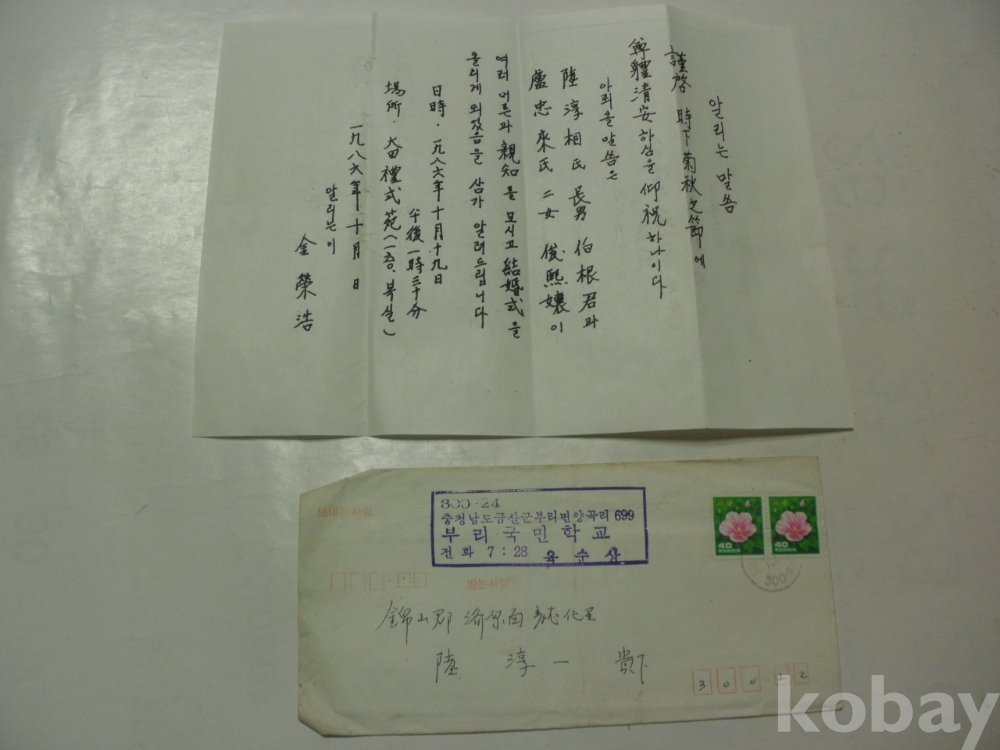 알리는 말씀
謹啓 時下 菊秋之節에
尊體淸安하심을 仰祝하나이다
아뢰올 말씀은
陸淳相氏 長男 伯根君과
盧忠來氏 二女 俊熙孃이
여러 어른과 親知을 모시고 結婚式을
올리게 되었음을 삼가 알려드립니다
日時·一九八六年十月十九日
午後一時三十分
場所·大田禮式苑(一층, 복실)
一九八六年 十月 日
알리는이
金榮浩
보내는사람
300-24
충청남도금산군부리면양곡리 699
부리국민학교
전화 7:28 육순상
40
40
300
받는사람
錦山郡 濟原面
陸 淳 一 貴下
3 0 0 2 2
kobay